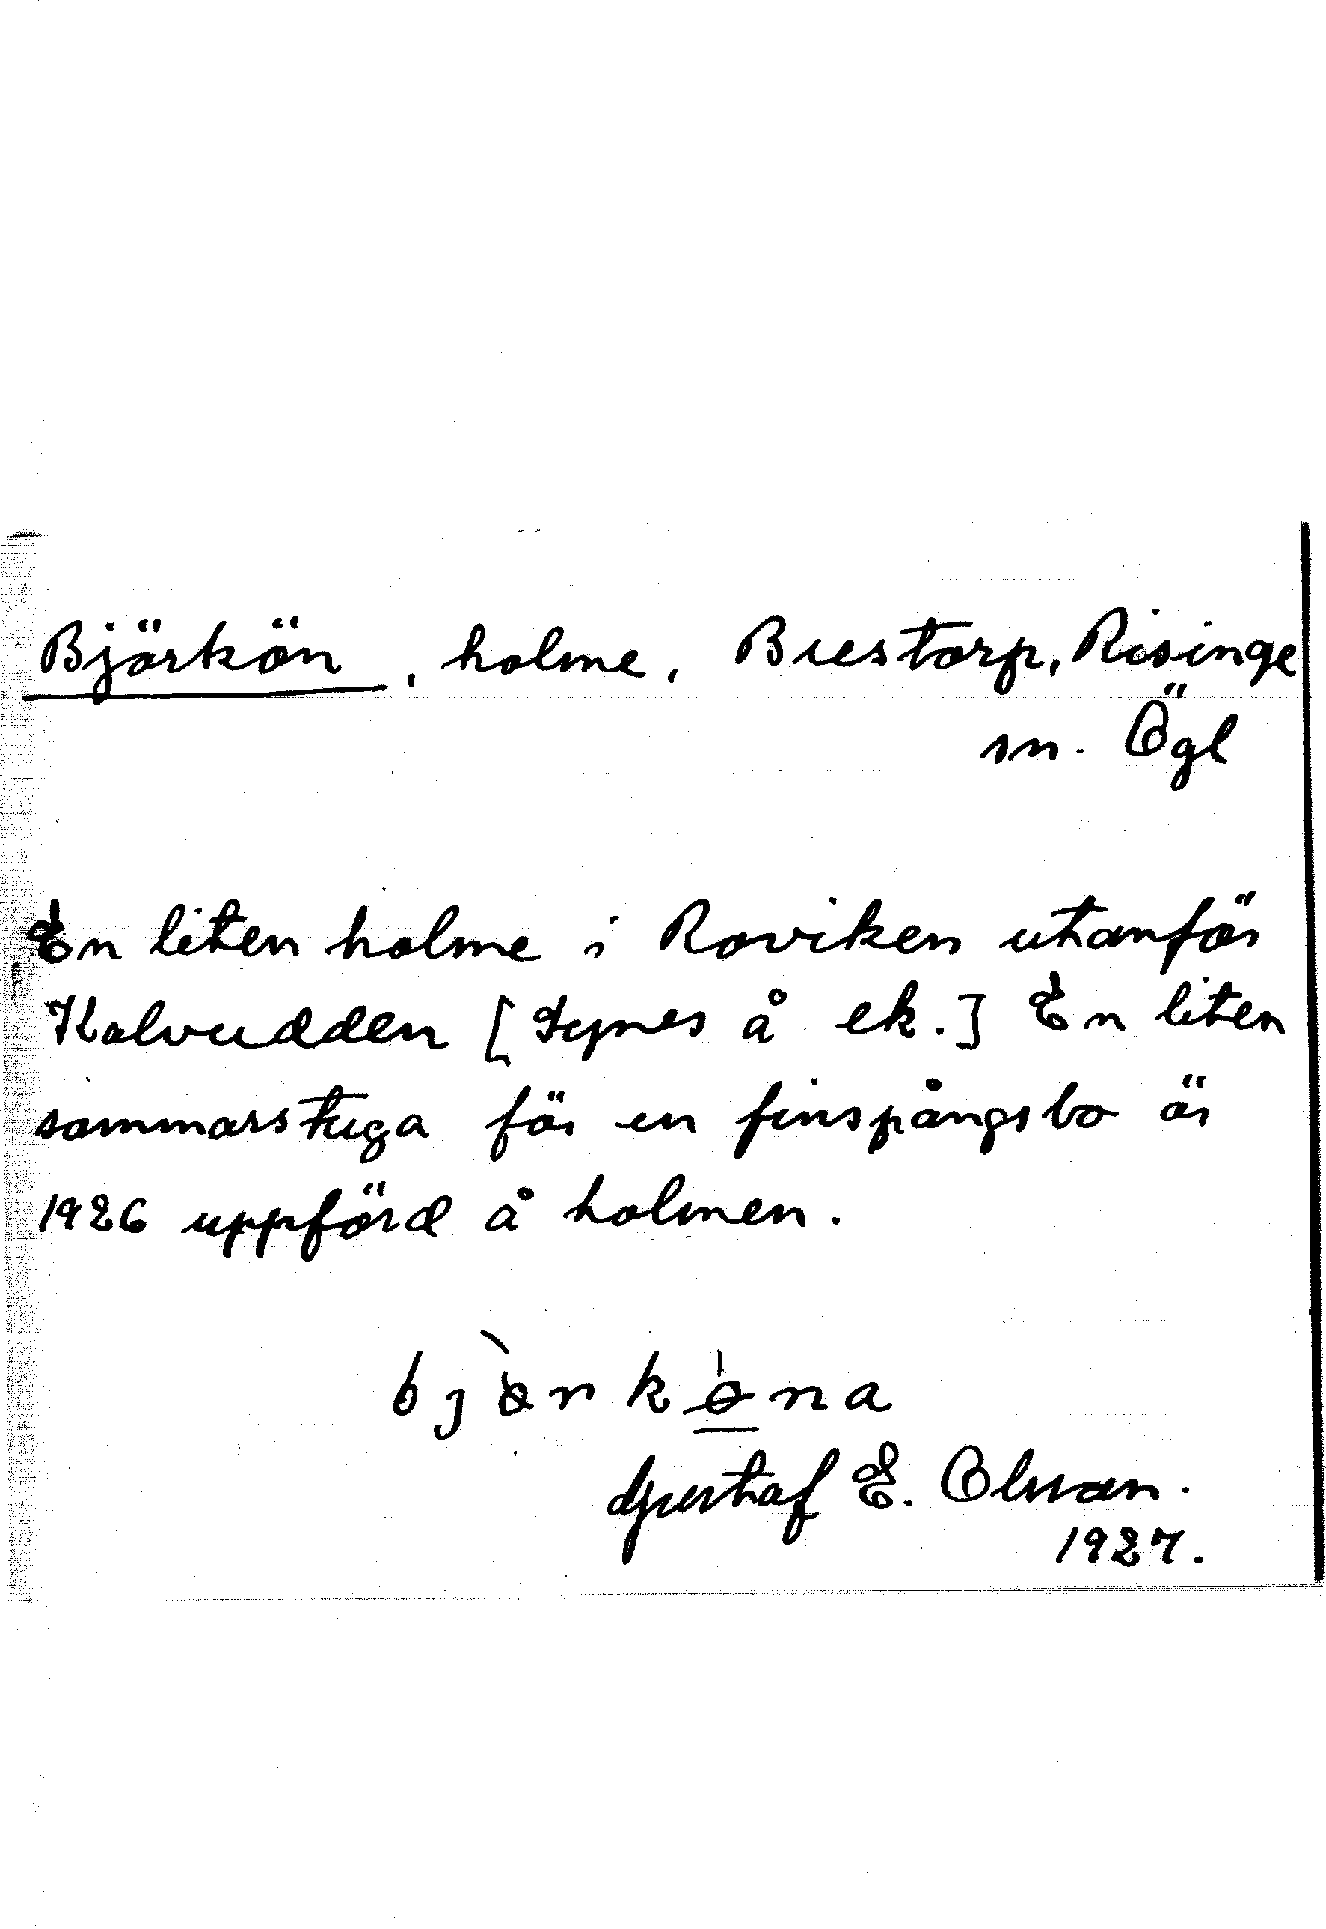 Björkön, holme, Buestorp, Risinge
sn. Ögl
En liten holme i Roviken utanför
Kalvudden [Synes å ek.] En liten
sommarstuga för en finspångsbo är
1926 uppförd å holmen.
bjørkøna
Gustaf E. Olsson.
1927.